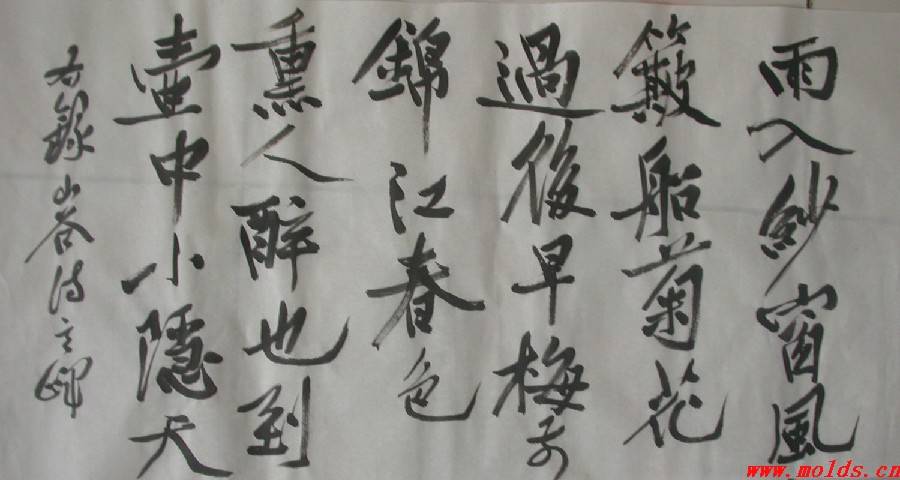 雨入紗窗風
簸船菊花
過後早梅前
錦江春色
熏人醉也到
壺中小隱天
右錄山谷詩之暉
www.molds.cn